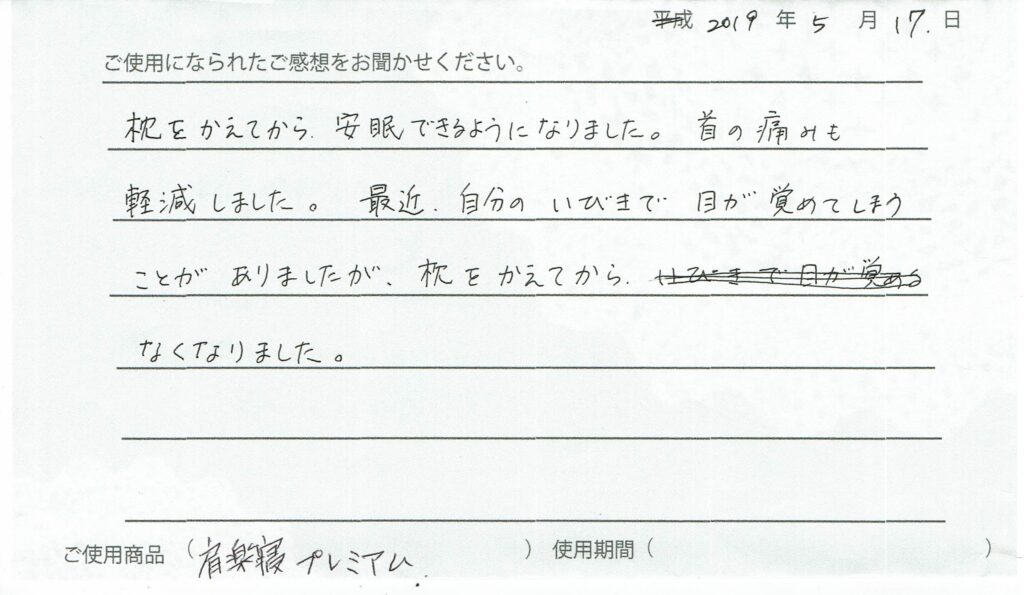 平成 2019 年 5 月 17. 日
ご使用になられたご感想をお聞かせください。
枕をかえてから、安眠できるようになりました。 首の痛みも
軽減しました。 最近、自分の いびきで 目が 覚めてしまう
ことが ありましたが、枕をかえてから、 いびきで目が覚める
なくなりました。
ご使用商品 ( 肩楽寝 プレミアム. ) 使用期間 ( )